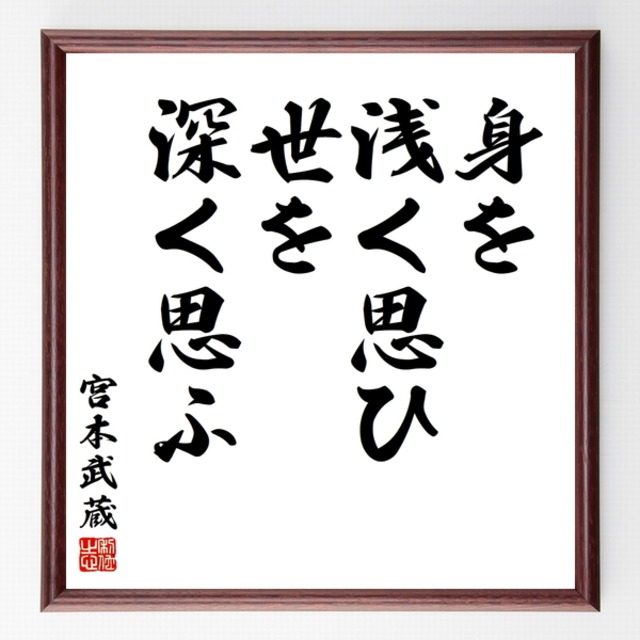 身を
浅く思ひ
世を
深く思ふ
宮本武蔵